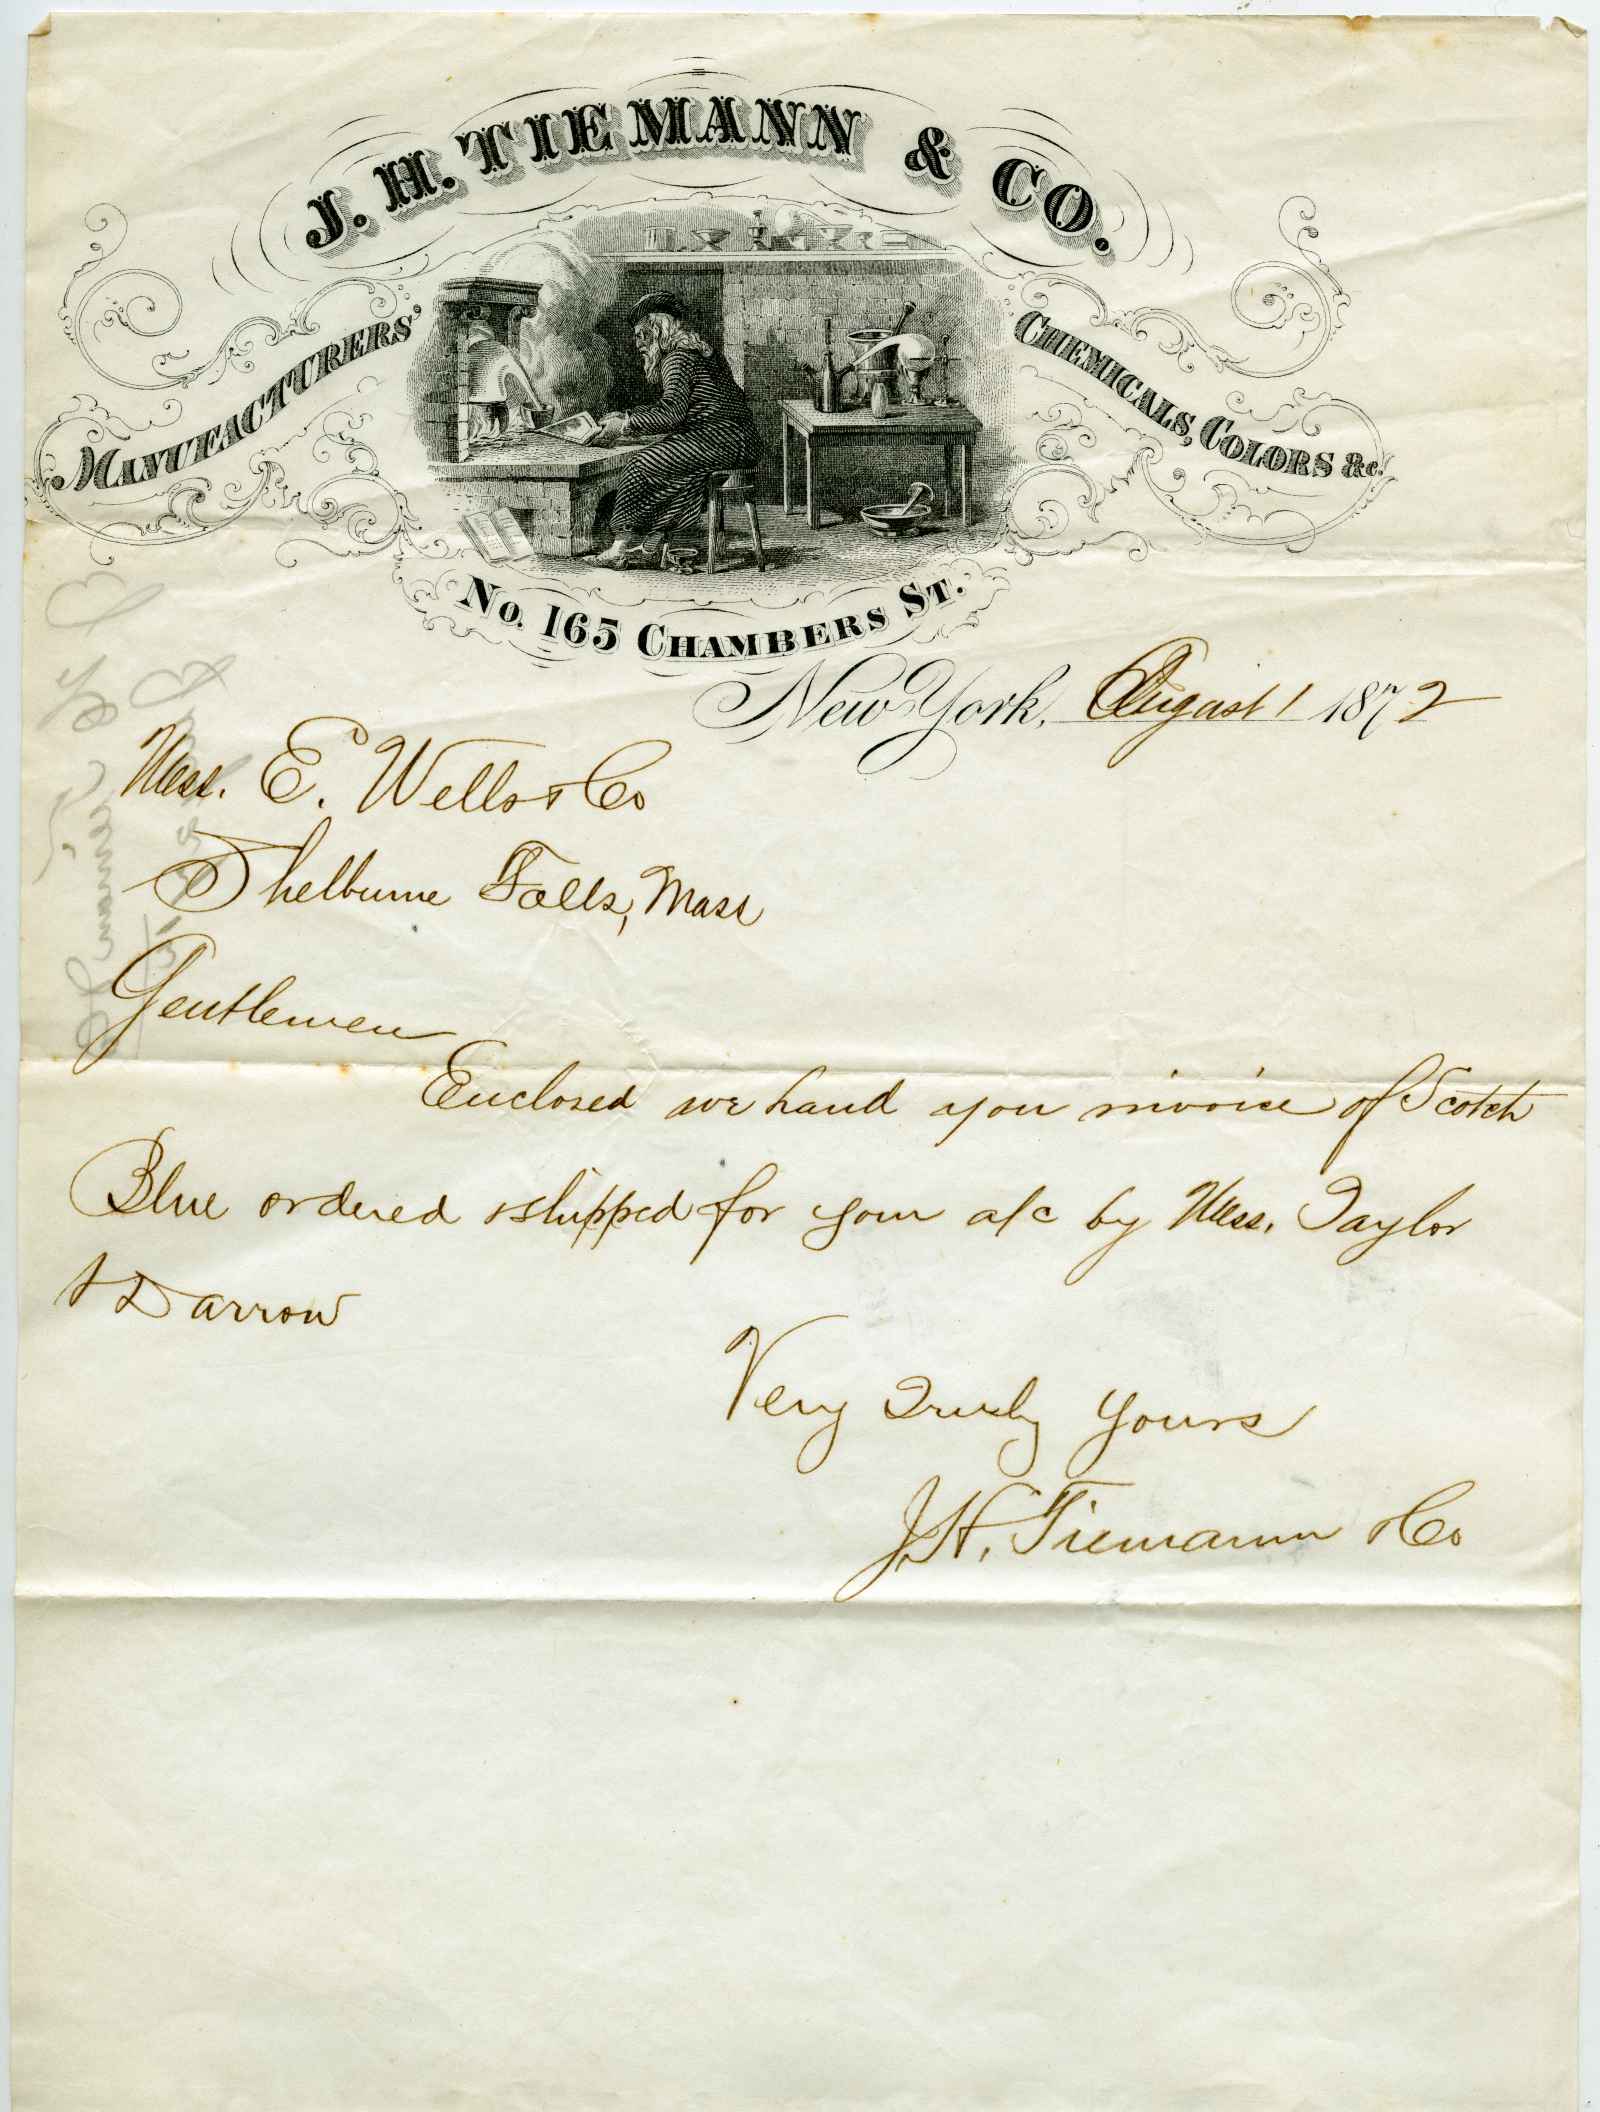 J. H. TIEMANN & CO.
MANUFACTURERS'
CHEMICALS, COLORS &c.
No. 165 CHAMBERS ST.
New York, August 1 1872
Mess. E. Wells & Co
Shelburne Falls, Mass
Gentlemen
Enclosed we hand you invoice of Scotch
Blue ordered & shipped for your a/c by Mess. Taylor
& Darrow
Very Truly Yours
J.H. Tiemann & Co